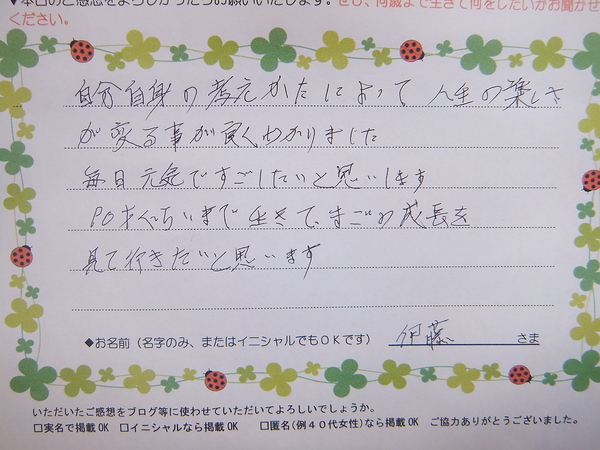 ▼本日のご感想をよろしかったらお願いいたします。ぜひ、何歳まで生きて何をしたいかお聞かせ
ください。
自分自身の考えかたによって 人生の楽しさ
が変る事が良くわかりました
毎日元気ですごしたいと思いします
90才くらいまで生きて、まごの成長を
見て行きたいと思います
◆お名前（名字のみ、またはイニシャルでもOKです） 伊藤 さま
いただいたご感想をブログ等に使わせていただいてよろしいでしょうか。
□実名で掲載OK □イニシャルなら掲載OK □匿名(例４０代女性)なら掲載OK ご協力ありがとうございました。